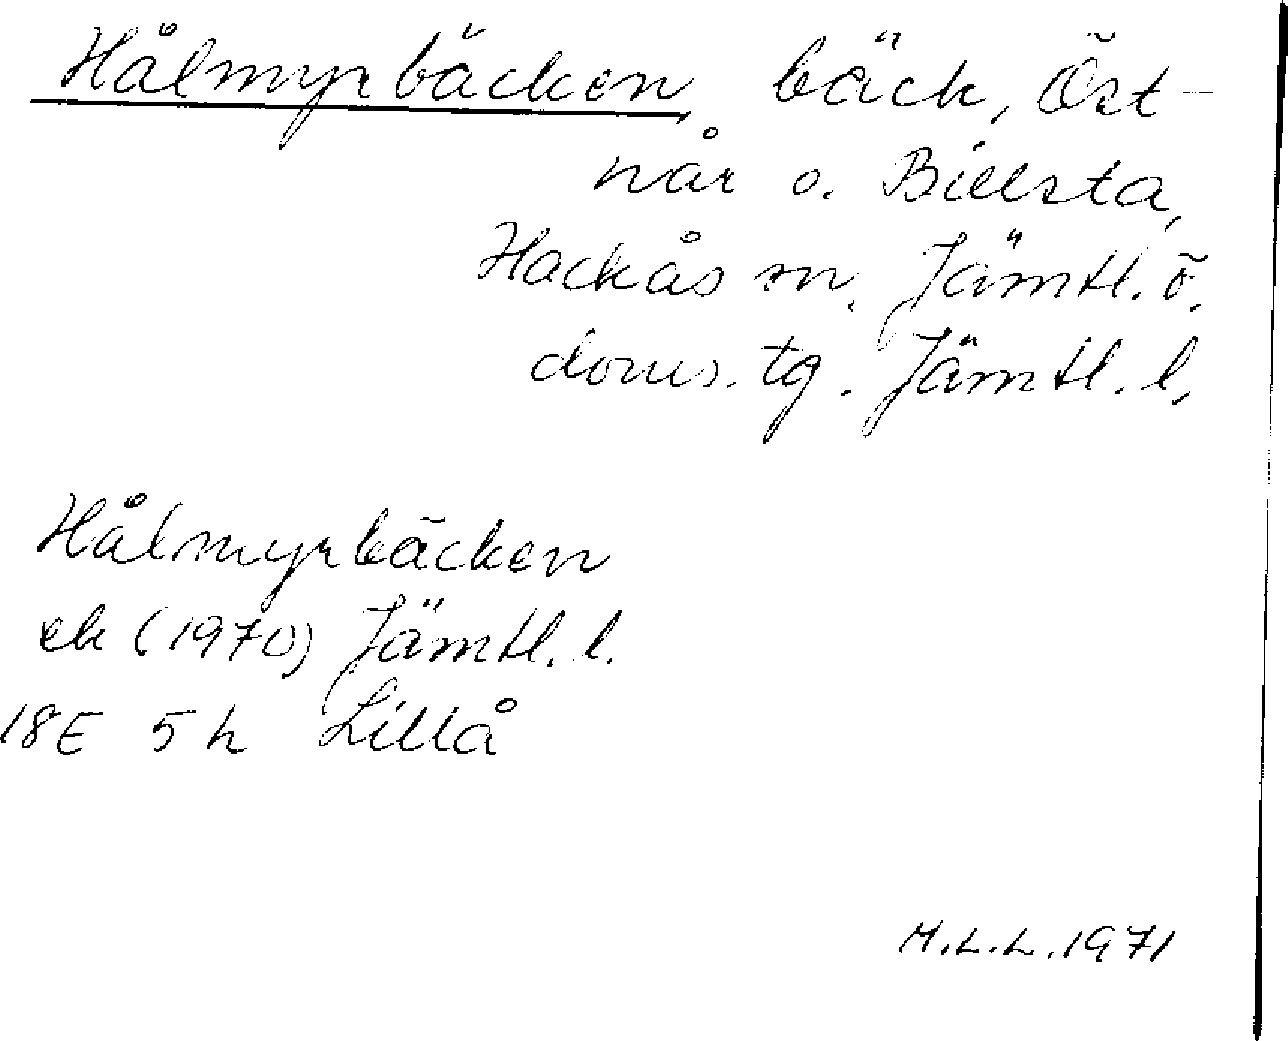 Hålmyrbäcken, bäck, Öst-
når o. Billsta,
Hackås sn, Jämtl. ö.
doms. tg. Jämtl. l.
Hålmyrbäcken
ek (1970) Jämtl. l.
18E 5h Lillå
M.L.L. 1971